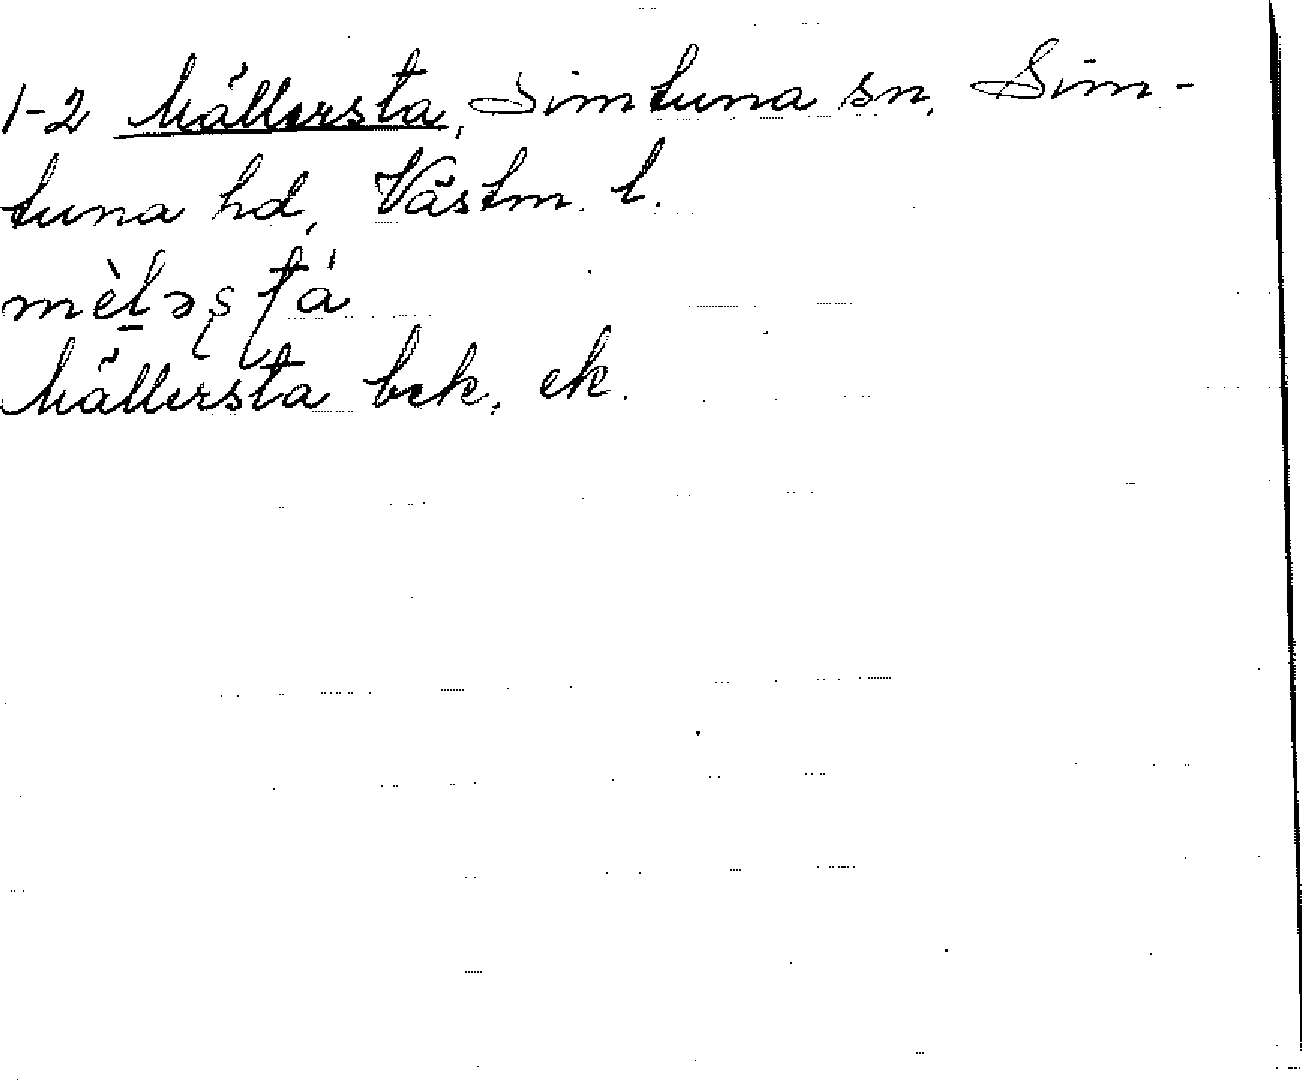 1-2 Mällersta, Simtuna sn, Sim-
tuna hd, Västm. l.
mèḻəʂʈá
Mällersta bek. ek.